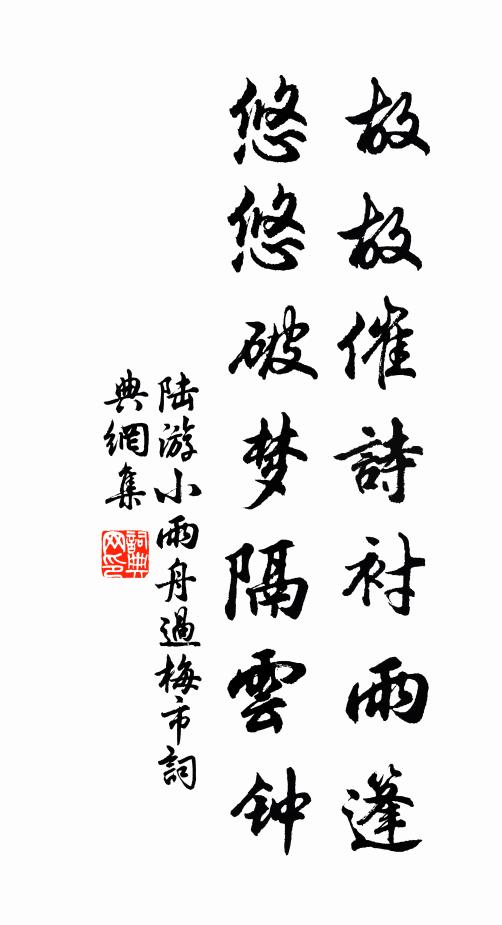 故故催詩衬雨篷
悠悠破梦隔雲钟
陆游小雨舟過梅市詞
典網集
詞典
网印